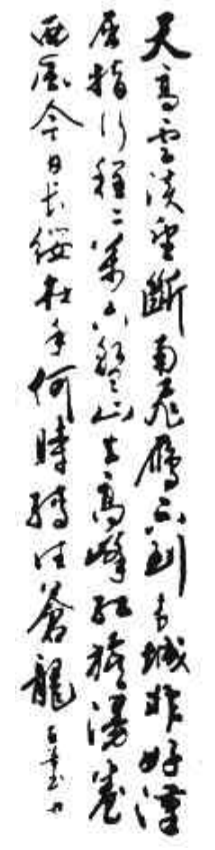 天高雲淡望斷南飛雁不到长城非好漢
屈指行程二萬六盤山上高峰红旗漫卷
西風今日长缨在手何時縛住蒼龍